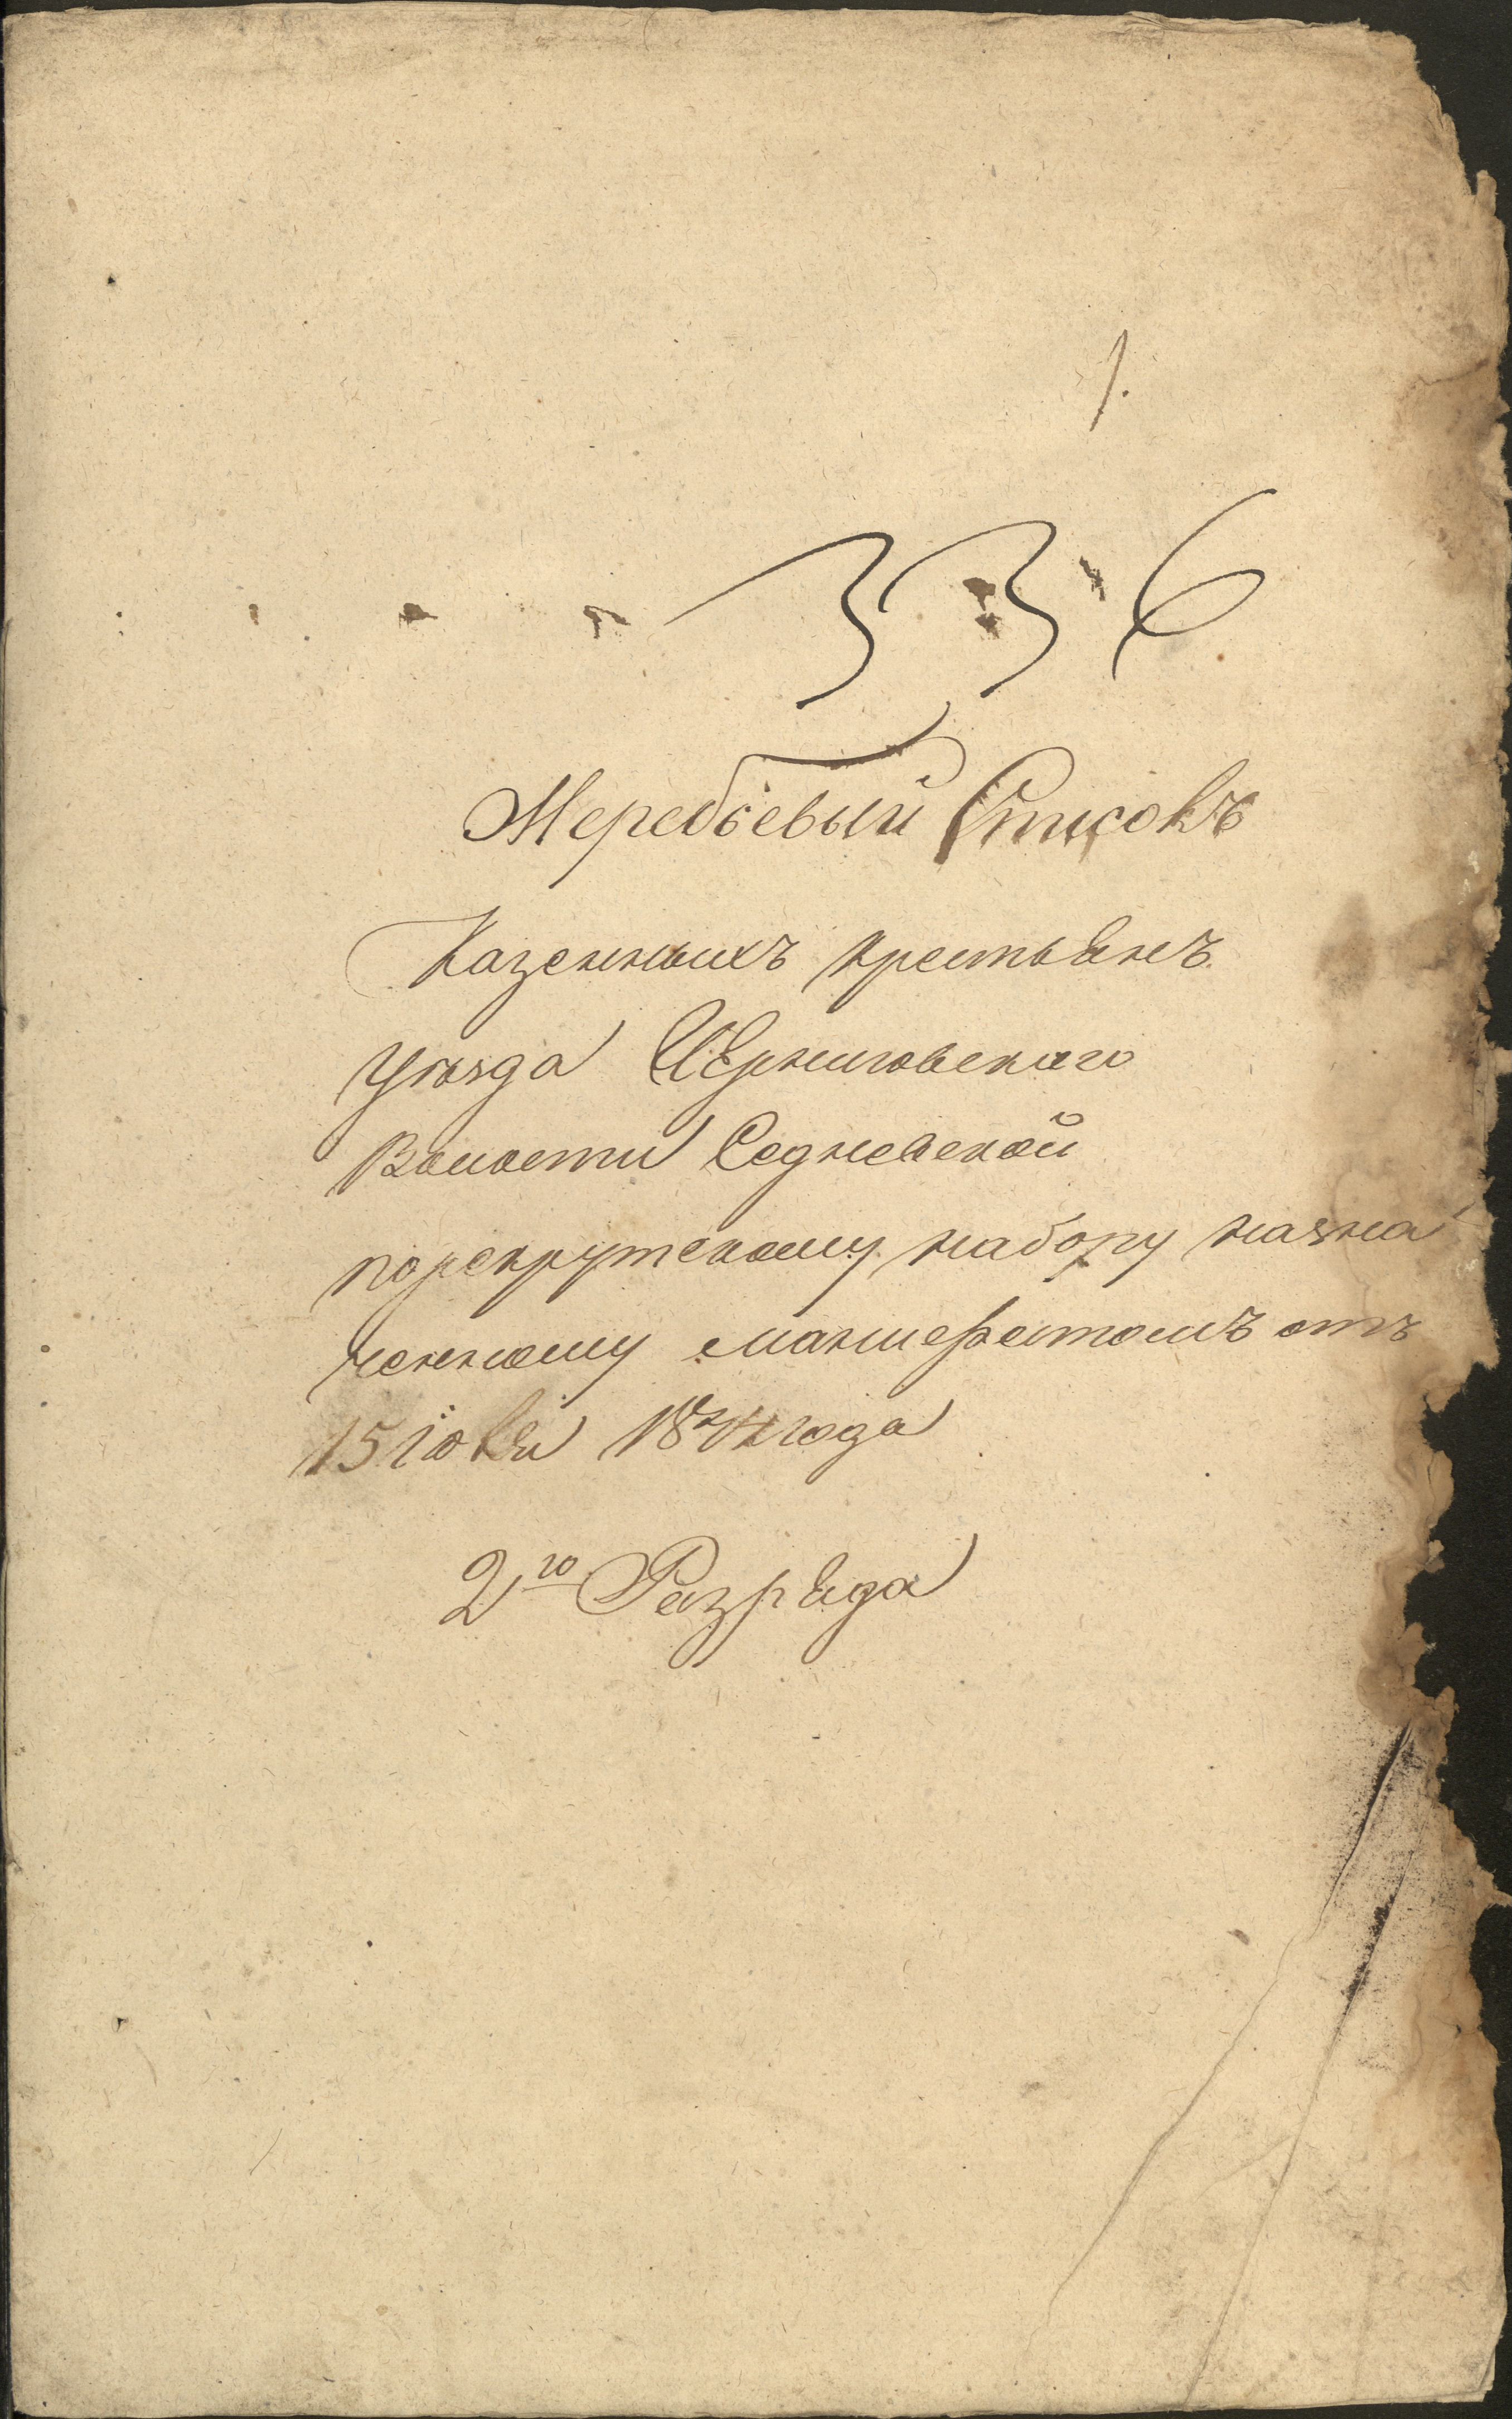 1.
336
Жеребьевый Списокъ
Казенныхъ крестьянъ
уѣзда Черниговскаго
Волости Седневской
порекрутскому набору назна
ченному манифестомъ отъ
15 года
2го Разряда